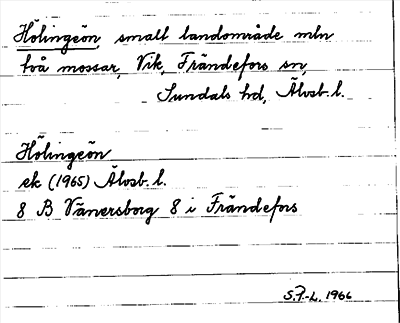 Hölingeön, smalt landområde mln
två mossar, Vik, Frändefors sn,
Sundals hd, Älvsb. l.
Hölingeön
ek (1965) Älvsb. l.
8 B Vänersborg 8 i Frändefors
S.P.-L. 1966